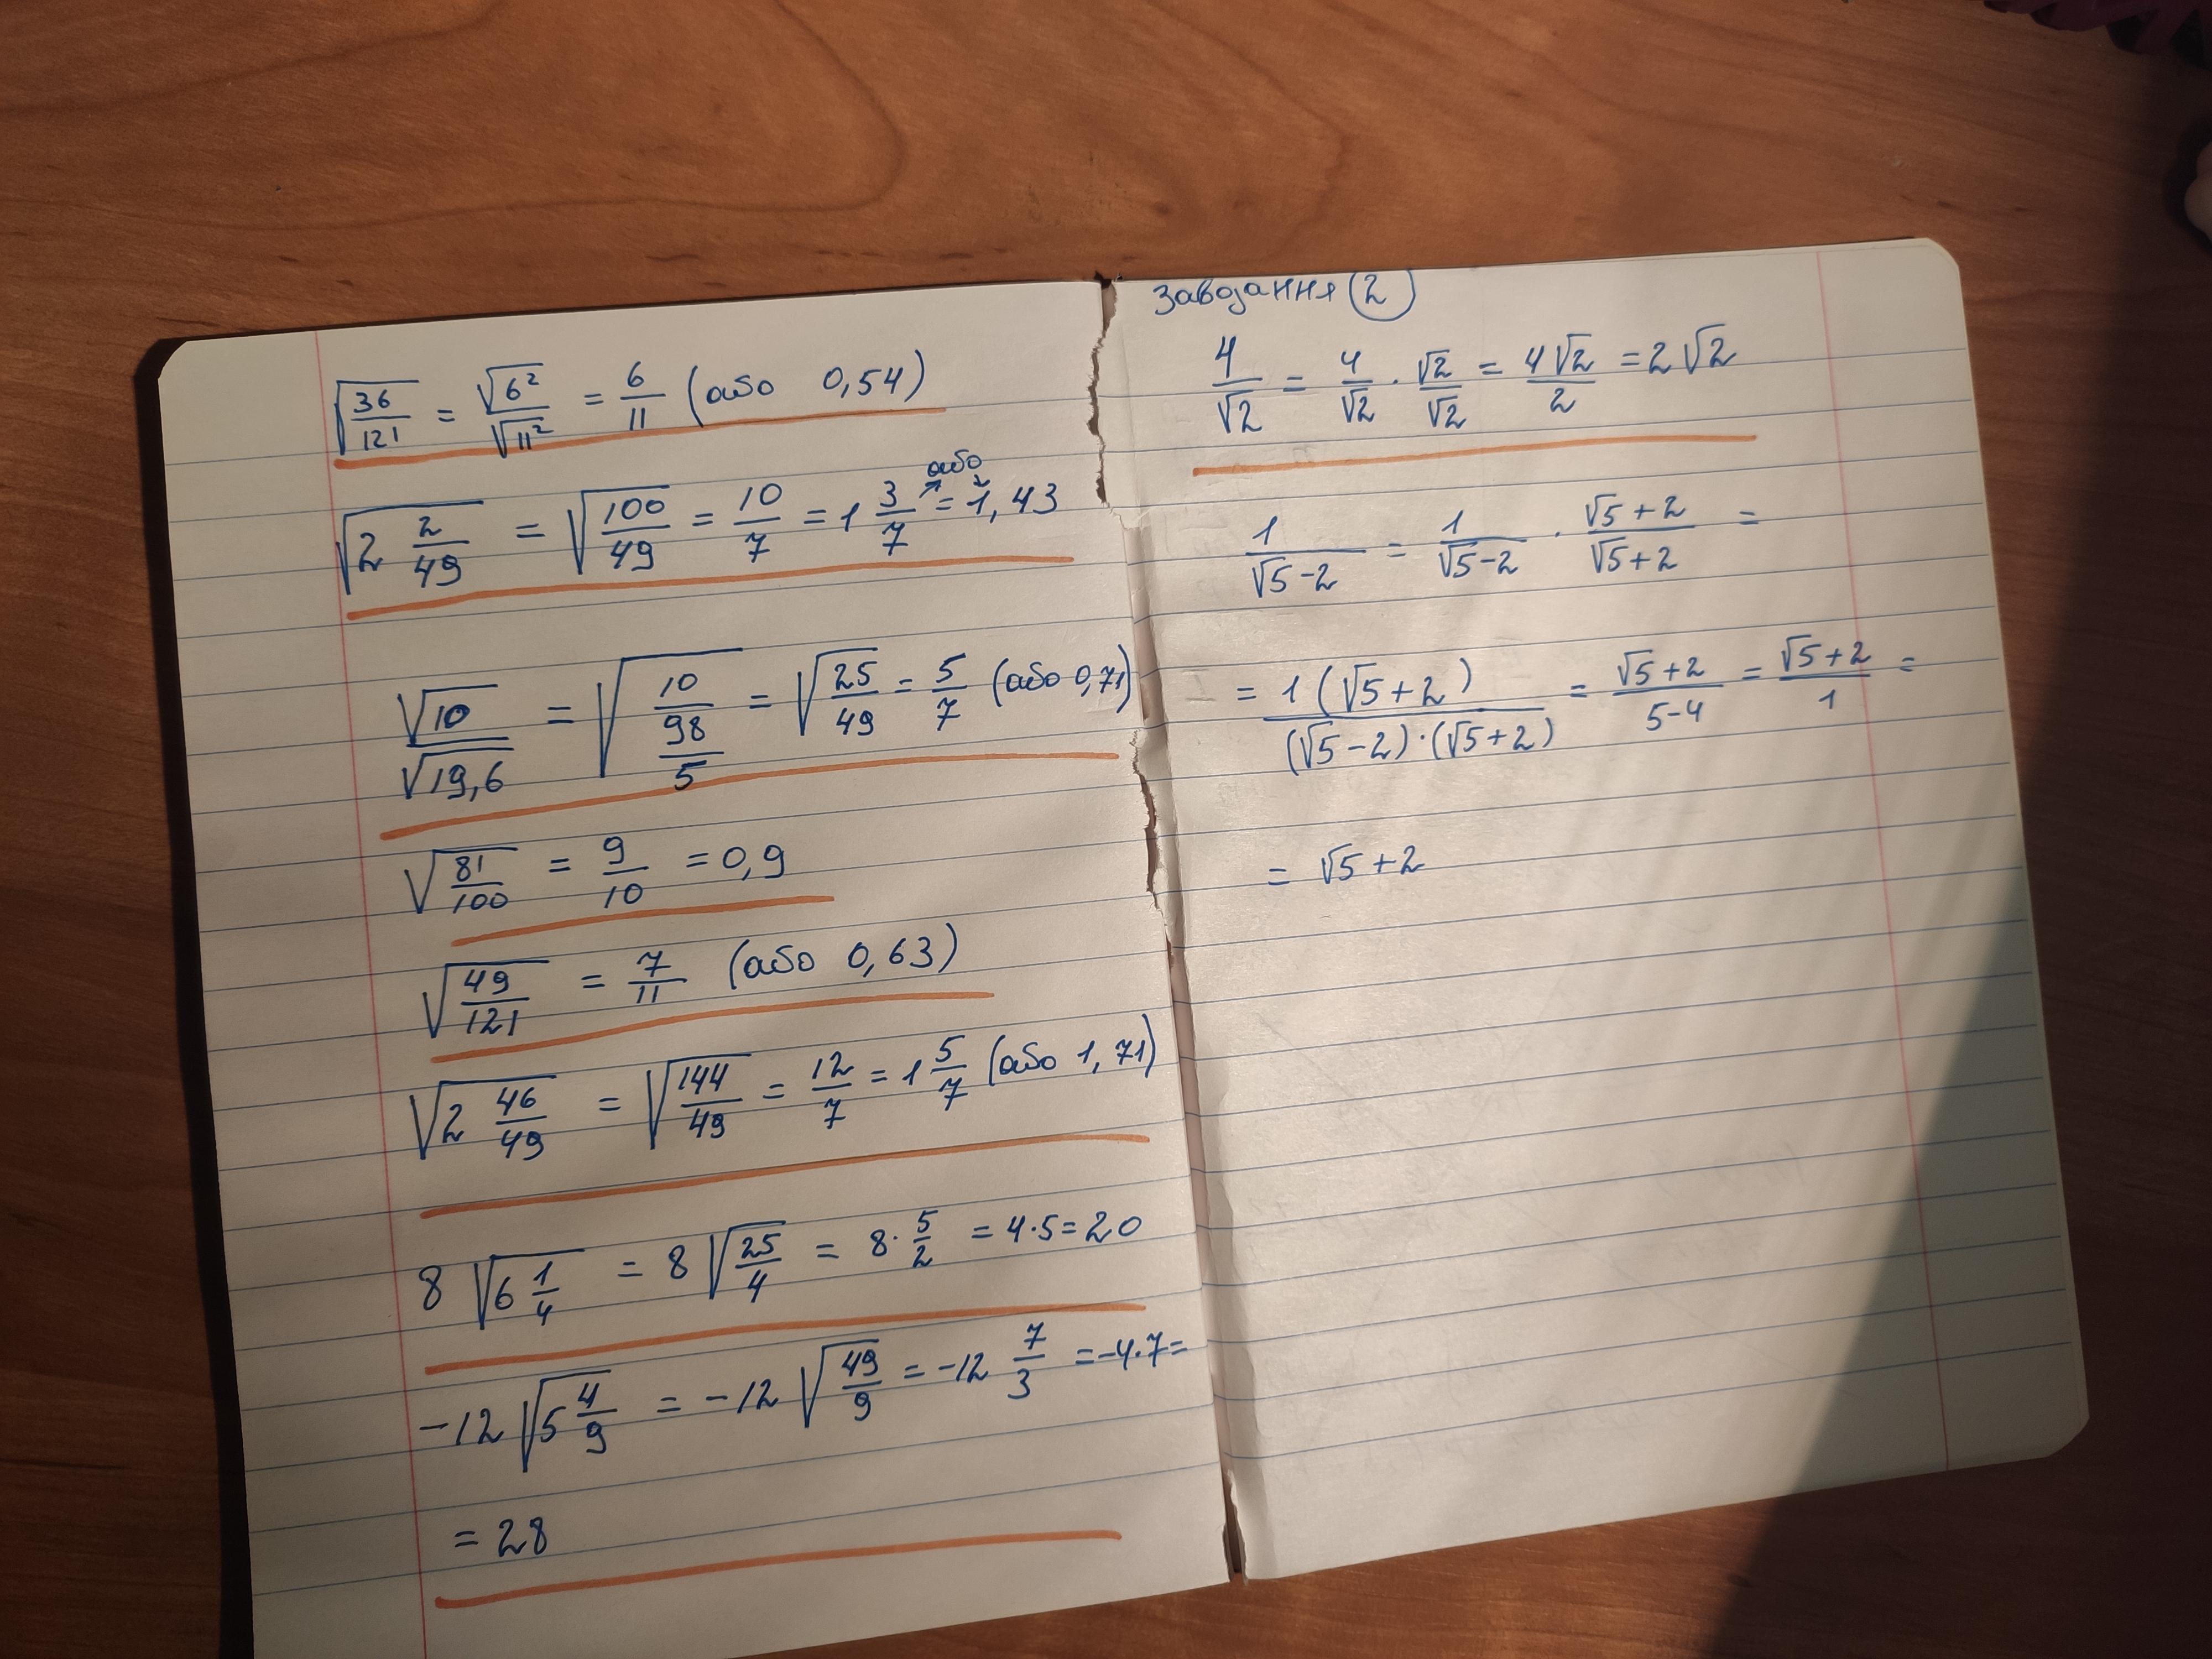 √(36/121) = √(6²)/√(11²) = 6/11 (або 0,54)
√(2 2/49) = √(100/49) = 10/7 = 1 3/7 = 1,43
або
√10/√19,6 = √(10/(98/5)) = √(25/49) = 5/7 (або 0,71)
√(81/100) = 9/10 = 0,9
√(49/121) = 7/11 (або 0,63)
√(2 46/49) = √(144/49) = 12/7 = 1 5/7 (або 1,71)
8 √(6 1/4) = 8 √(25/4) = 8 · 5/2 = 4·5 = 20
-12 √(5 4/9) = -12 √(49/9) = -12 7/3 = -4·7 =
= 28
завдання 2
4/√2 = 4/√2 · √2/√2 = 4√2/2 = 2√2
1/(√5-2) = 1/(√5-2) · (√5+2)/(√5+2) =
= 1(√5+2)/((√5-2)·(√5+2)) = (√5+2)/(5-4) = (√5+2)/1 =
= √5+2